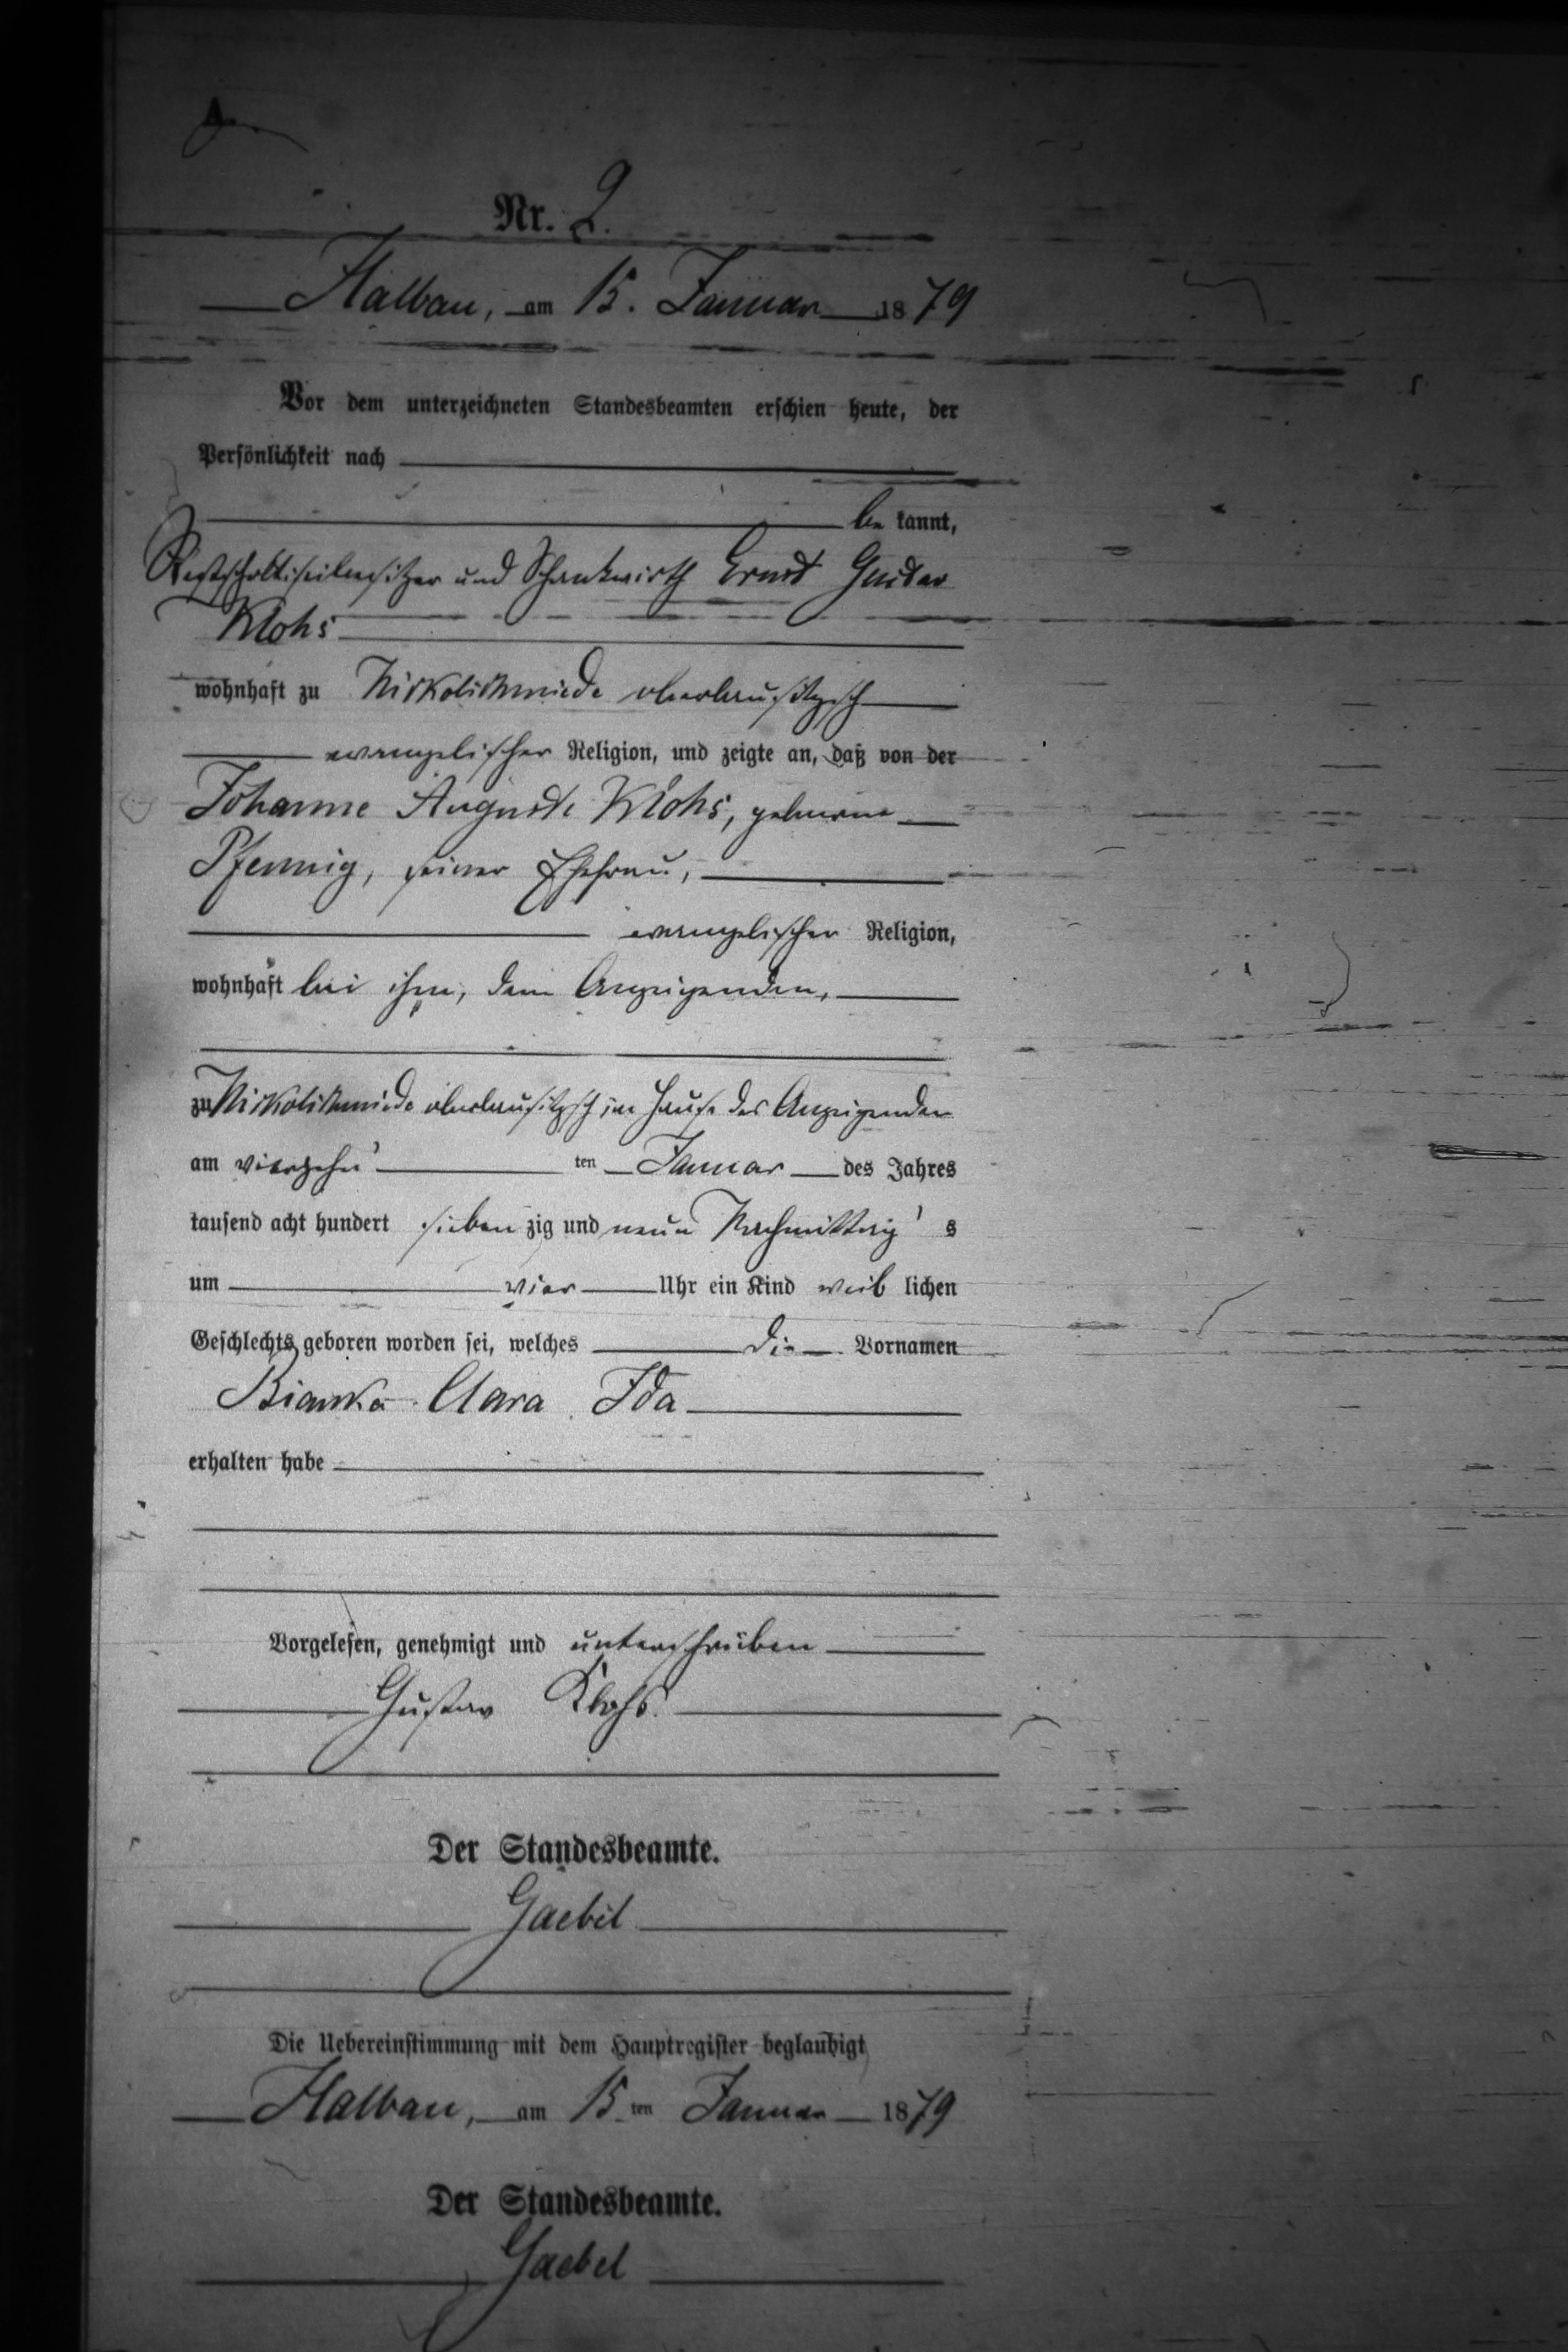 A.
Nr. 2.
Halbau, am 15. Januar 1879
Vor dem unterzeichneten Standesbeamten erschien heute, der
Persönlichkeit nach
be kannt,
Restscholtiseibesitzer und Schankwirth Ernst Gustav
Klohs
wohnhaft zu Nikolschmiede oberlausitzsch
evangelischer Religion, und zeigte an, daß von der
Johanne Auguste Klohs, geborene
Pfennig, seiner Ehefrau,
evangelischer Religion,
wohnhaft bei ihm, dem Anzeigenden,
zu Nikolschmiede oberlausitzsch im Hause des Anzeigenden
am vierzehn ten Januar des Jahres
tausend acht hundert sieben zig und neun Nachmittag s
um vier Uhr ein Kind weib lichen
Geschlechts geboren worden sei, welches die Vornamen
Bianka Clara Ida
erhalten habe
Vorgelesen, genehmigt und unterschrieben
Gustav Klohs.
Der Standesbeamte.
Gaebel
Die Uebereinstimmung mit dem Hauptregister beglaubigt
Halbau, am 15 ten Januar 1879
Der Standesbeamte.
Gaebel